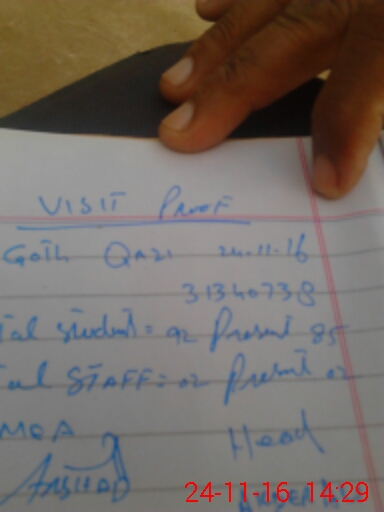 VISIT PROOF
Goth Qazi 24.11.16
31340738
tal student = 92 Present 85
tal STAFF = 02 Present 02
MEA Head
ARSHAD
24-11-16 14:29